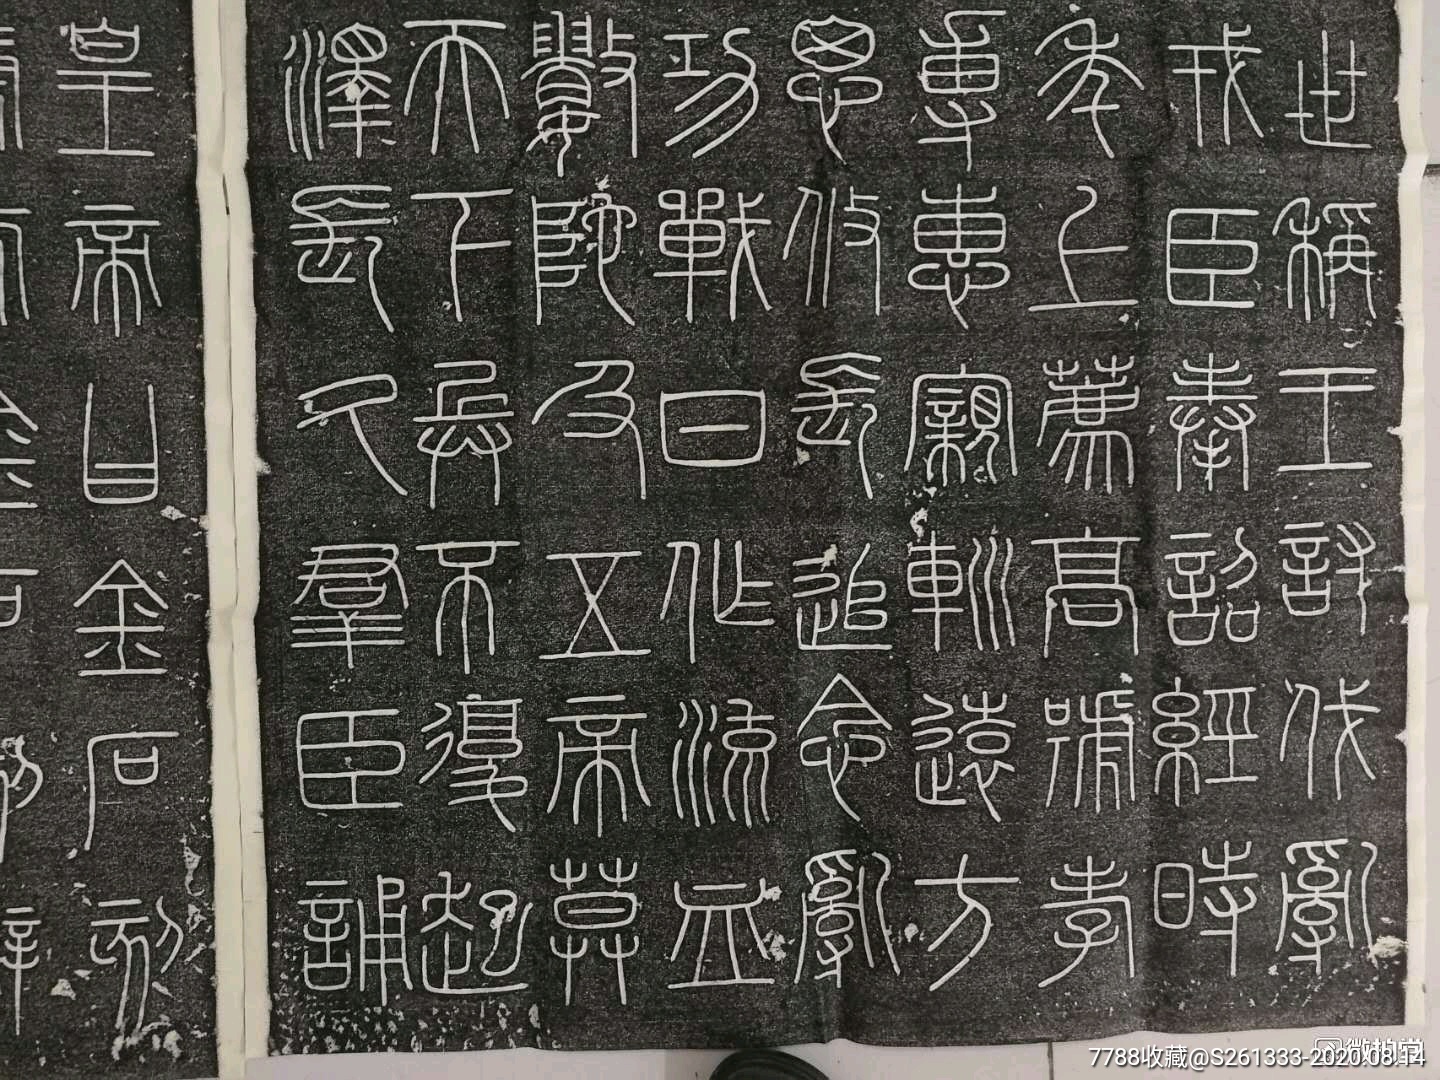 世稱王討伐亂
戎臣奉詔經時
年上薦高號孝
專惠寴巡遠方
思攸長追念亂
功戰日作流血
數阤及五帝莫
天下兵不復起
澤長久羣臣誦
皇帝曰金石刻
7788收藏@S261333-2020.08.14
微拍堂